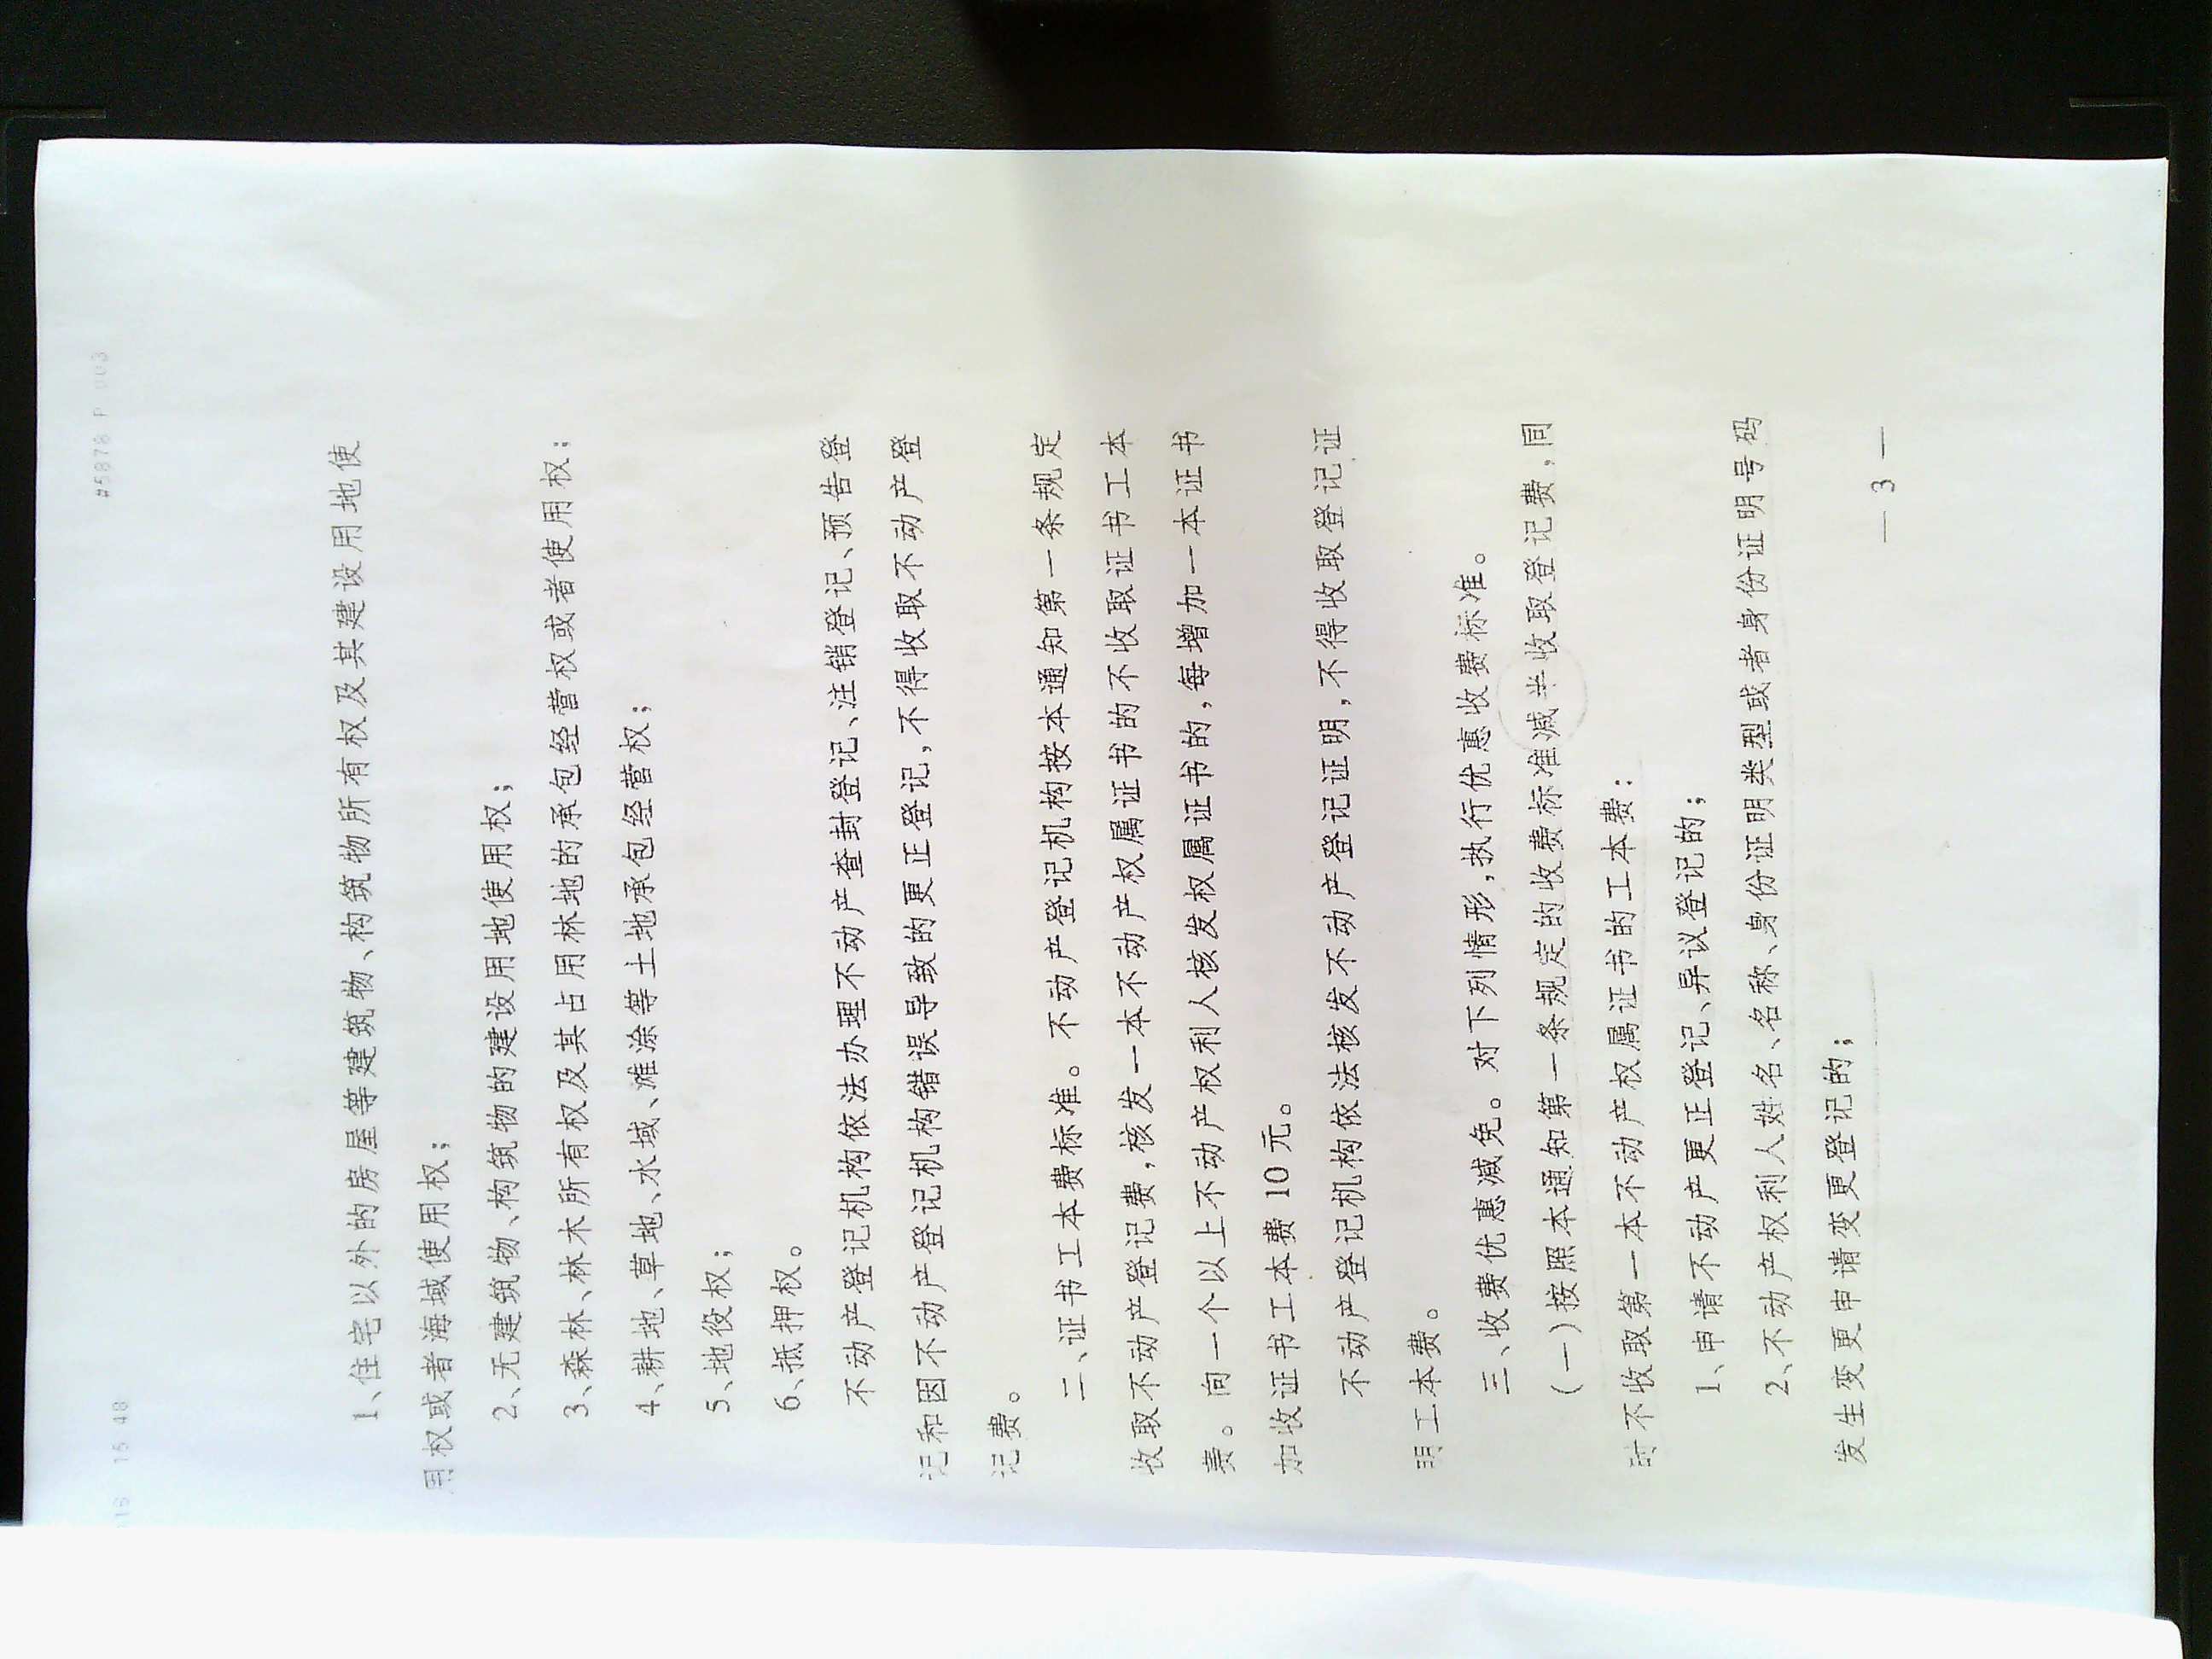 15 48 #5878 P.003
1、住宅以外的房屋等建筑物、构筑物所有权及其建设用地使
用权或者海域使用权；
2、无建筑物、构筑物的建设用地使用权；
3、森林、林木所有权及其占用林地的承包经营权或者使用权；
4、耕地、草地、水域、滩涂等土地承包经营权；
5、地役权；
6、抵押权。
不动产登记机构依法办理不动产查封登记、注销登记、预告登
记和因不动产登记机构错误导致的更正登记，不得收取不动产登
记费。
二、证书工本费标准。不动产登记机构按本通知第一条规定
收取不动产登记费，核发一本不动产权属证书的不收取证书工本
费。向一个以上不动产权利人核发权属证书的，每增加一本证书
加收证书工本费10元。
不动产登记机构依法核发不动产登记证明，不得收取登记证
明工本费。
三、收费优惠减免。对下列情形，执行优惠收费标准。
(一)按照本通知第一条规定的收费标准减半收取登记费，同
时不收取第一本不动产权属证书的工本费：
1、申请不动产更正登记、异议登记的；
2、不动产权利人姓名、名称、身份证明类型或者身份证明号码
发生变更申请变更登记的；
— 3 —